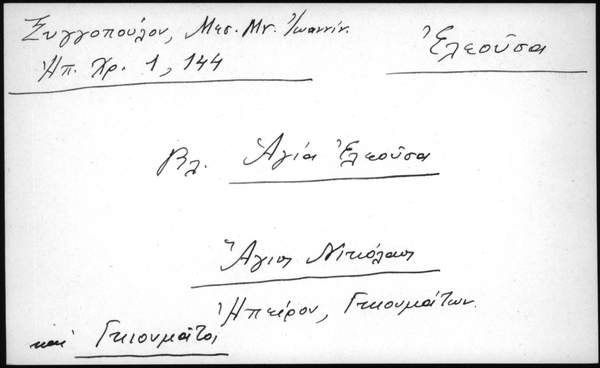 Ξυγγοπούλου, Μεσ. Μν. Ἰωαννίν.
Ἠπ. Χρ. 1, 144
Ἐλεοῦσα
Βλ. Ἁγία Ἐλεοῦσα
Ἅγιος Νικόλαος
Ἠπείρου, Γκιουμάτων.
καὶ Γκιουμᾶτοι